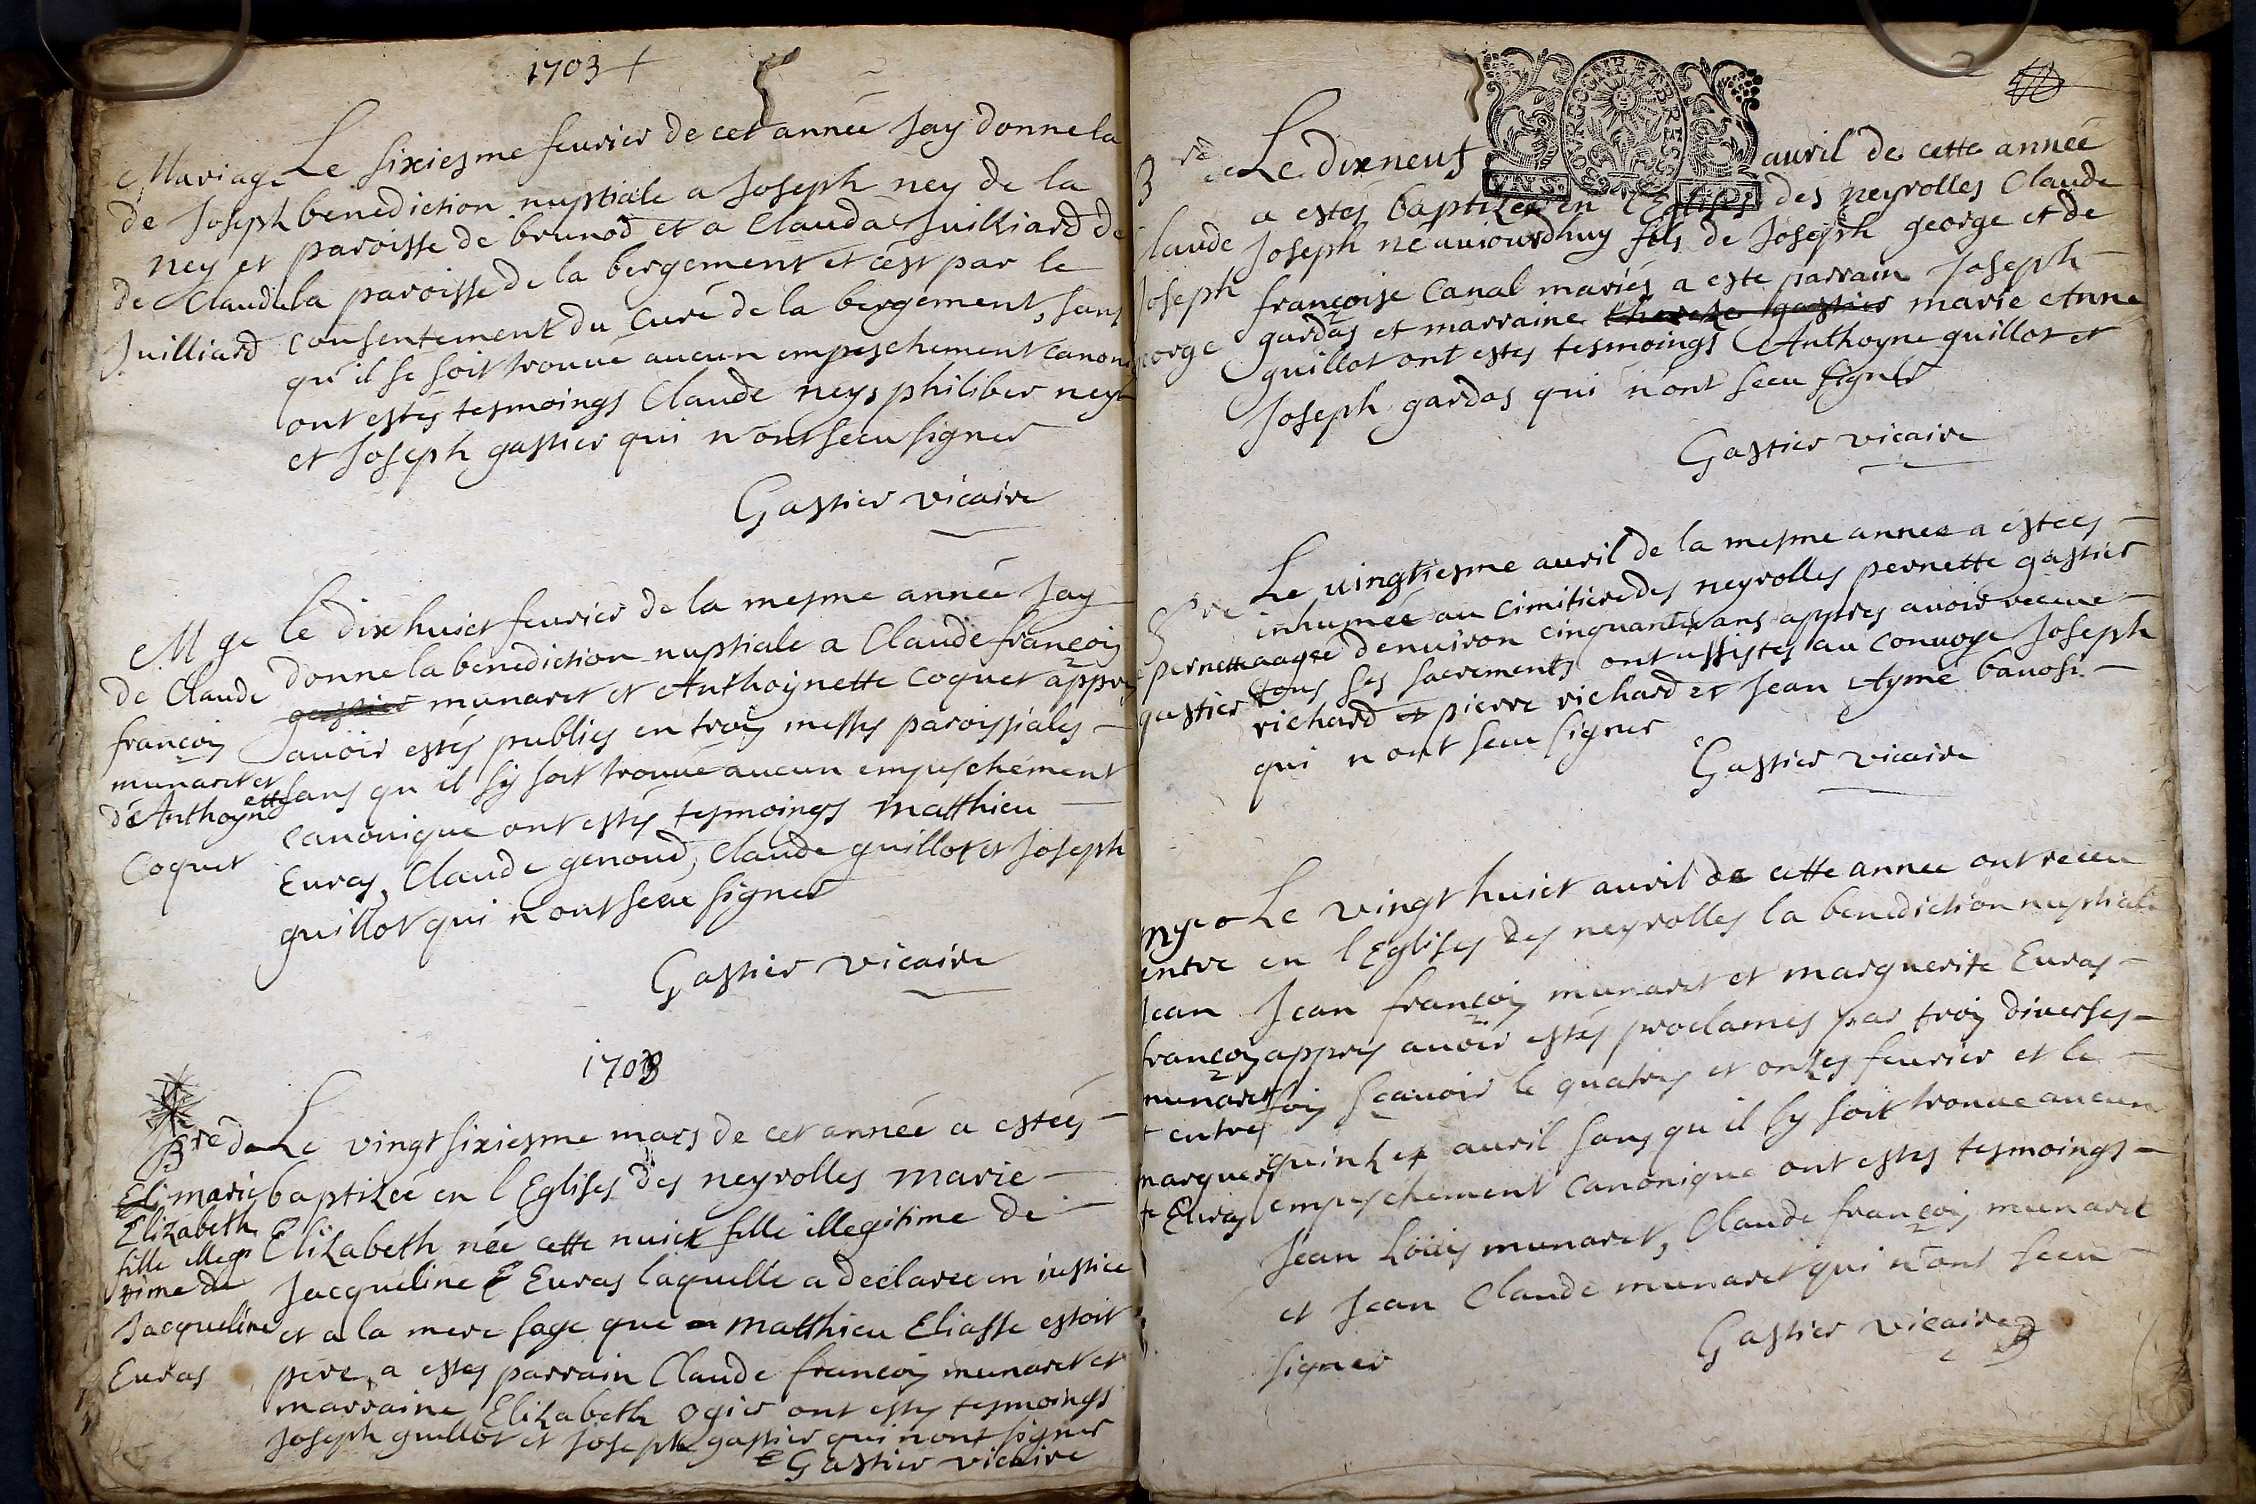 1703
Mariage
de Joseph
ney et
de Claudela
Juilliard
Le sixiesme feurier de cet année Jay donne la
benediction nuptiale a Joseph ney de la
paroisse de brunod et a Clauda Juilliard de
la paroisse de la bergement et cest par le
consentement du curé de la bergement, sans
qu'il se soit trouué aucun empeschement canoni
ont estés tesmoings Claude neys philiber ney
et Joseph gastier qui nont sceu signer
Gastier vicaire
M ge
de Claude
francois
munaret et
de Anthoynette
Coquet
le dixhuict feurier de la mesme année Jay
donne la benediction nuptiale a Claude francois
gastier munaret et Anthoynette Coquet appres
auoir estés publies en trois messes paroissiales
sans qu il sy soit trouué aucun empeschement
canonique ont estés tesmoings matthieu
Euras, Claude genoud, Claude guillot et Joseph
guillot qui n ont sceu signer
Gastier vicaire
1703
Bre de
El marie
Elizabeth
fille illegi
time de
Jacqueline
Euras
Le vingtsixiesme mars de cet année a estéés
baptizéé en l Eglises des neyrolles marie
Elizabeth néé cette nuict fille illegitime de
Jacqueline E Euras laquelle a declaree en iustice
et a la mere sage que matthieu Eliasse estoit
pere, a estes parrain Claude francois munaret et
marraine Elizabeth ogier ont estes tesmoings
Joseph guillot et Joseph gastier qui nont signer
Gastier vicaire
B re de
Claude
Joseph
george
Le dixneuf auril de cette année
a estés baptizes en l Eglises des neyrolles Claude
Joseph né auiourdhuy fils de Joseph george et de
francoise Canal mariés a este parrain Joseph
gardas et marraine thereze gastier marie Anne
guillot ont estes tesmoings Anthoyne guillot et
Joseph gardas qui n ont sceu signer
Gastier vicaire
S re
pernette
gastier
Le uingtiesme auril de la mesme annee a estees
inhumée au cimitiere des neyrolles pernette gastier
aagee denuiron cinquante ans appres auoir receue
tous ses sacrements ont assistes au conuoye Joseph
richard et pierre richard et Jean Aymé banosi
qui n ont sceu signer
Gastier vicaire
mge
entre
Jean
francois
munaret
et entre
margueri
te Euras
Le vingthuict auril de cette annee ont receu
en l Eglises des neyrolles la benediction nuptiale
Jean francois munaret et marguerite Euras
appres auoir estés proclames par trois diverses
fois scauoir le quatres et onzes feurier et le
quinzes auril sans qu il sy soit trouue aucun
empeschement canonique ont estes tesmoings
Jean Loüis munaret, Claude francois munaret
et Jean Claude munaret qui n ont sceu
signer
Gastier vicaire